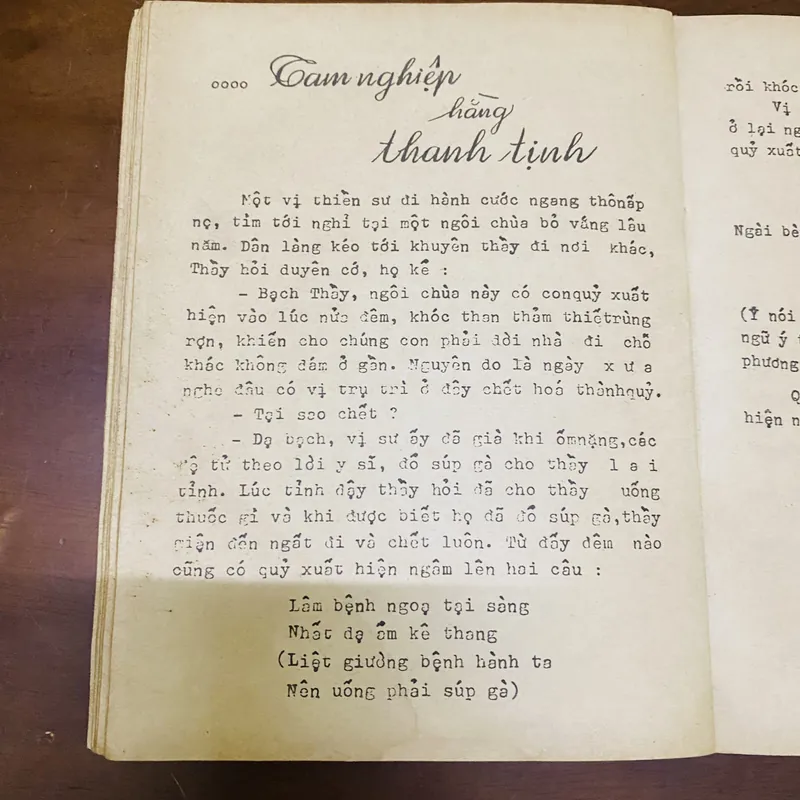 oooo Tam nghiệp
hằng
thanh tịnh
Một vị thiền sư đi hành cước ngang thônấp
nọ, tìm tới nghỉ tại một ngôi chùa bỏ vắng lâu
năm. Dân làng kéo tới khuyên thầy đi nơi khác,
Thầy hỏi duyên cớ, họ kể :
- Bạch Thầy, ngôi chùa này có conquỷ xuất
hiện vào lúc nửa đêm, khóc than thảm thiếtrùng
rợn, khiến cho chúng con phải dời nhà đi chỗ
khác không dám ở gần. Nguyên do là ngày x ư a
nghe đâu có vị trụ trì ở đây chết hoá thànhquỷ.
- Tại sao chết ?
- Dạ bạch, vị sư ấy đã già khi ốmnặng,các
đệ tử theo lời y sĩ, đổ súp gà cho thầy l a i
tỉnh. Lúc tỉnh dậy thầy hỏi đã cho thầy uống
thuốc gì và khi được biết họ đã đổ súp gà,thầy
giận đến ngất đi và chết luôn. Từ đấy đêm nào
cũng có quỷ xuất hiện ngâm lên hai câu :
Lâm bệnh ngoạ tại sàng
Nhất dạ ẩm kê thang
(Liệt giường bệnh hành ta
Nên uống phải súp gà)
rồi khóc
Vị
ở lại ng
quỷ xuất
Ngài bè
(Ý nói
ngữ ý t
phương
Q
hiện n